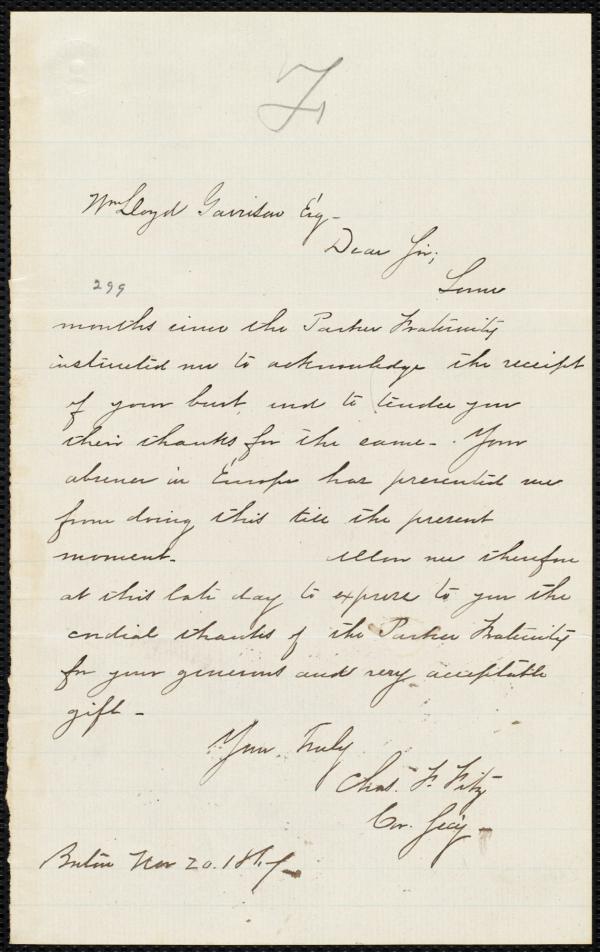 F
Wm Lloyd Garrison Esq -
Dear Sir;
299
Some
months since the Parker Fraternity
instructed me to acknowledge the receipt
of your bust and to tender you
their thanks for the same - . Your
absence in Europe has prevented me
from doing this till the present
moment - Allow me therefore
at this late day to express to you the
cordial thanks of the Parker Fraternity
for your generous and very acceptable
gift -
Yours Truly
Chas. F. Fitz
Cor. Secy -
Boston Nov 20.